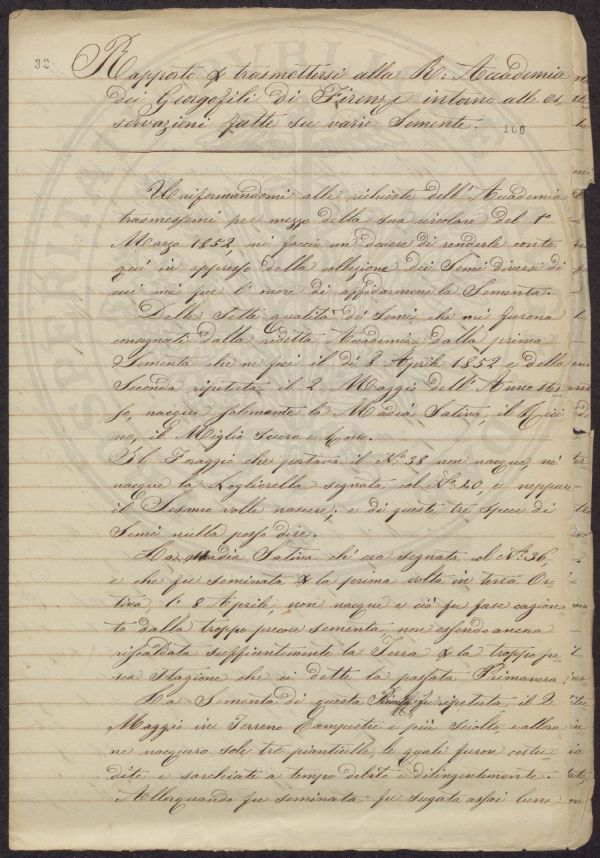 32
Rapporto da trasmettersi alla R: Accademia
dei Georgofili di Firenze intorno alle Os,
servazioni fatte su varie Semente.
100
Uniformandomi alle richieste dell' Accademia
trasmessemi per mezzo della sua circolare del 1°
Marzo 1852, mi faccio un dovere di renderle conto
qui in appresso della collezione dei Semi diversi di
cui mi fece l' onore di affidarmene la Sementa.
Delle Sette qualità di Semi che mi furono
consegnati dalla ridetta Accademia dalla prima
Sementa che ne feci il dì 8 Aprile 1852 e della
Seconda ripetuta il 2 Maggio dell' Anno stes
so, nacque solamente la Madia Sativa, il Rici
no, il Miglio scuro e
Il Foraggio che portava il N° 38 non nacque, nè
nacque la Loglierella segnata col N° 40, e neppure
il Sesamo volle nascere, e di queste tre specie di
Semi nulla posso dire.
La Madia Sativa ch' era segnata col N° 36,
e che fu seminata la prima volta in terra Or
tiva, l' 8 Aprile, non nacque e ciò fu forse cagiona
to dalla troppo precoce sementa, non essendo ancora
riscaldata sufficientemente la Terra la troppo
Stagione che si dette la passata Primavera
La Sementa di questa fu ripetuta il 2
Maggio in Terreno Campestre e più sciolto, e allora
ne nacquero sole tre pianticelle, le quali furon custo
dite e sarchiate a tempo debito e diligentemente.
Allorquando fu seminata fu sugata assai bene